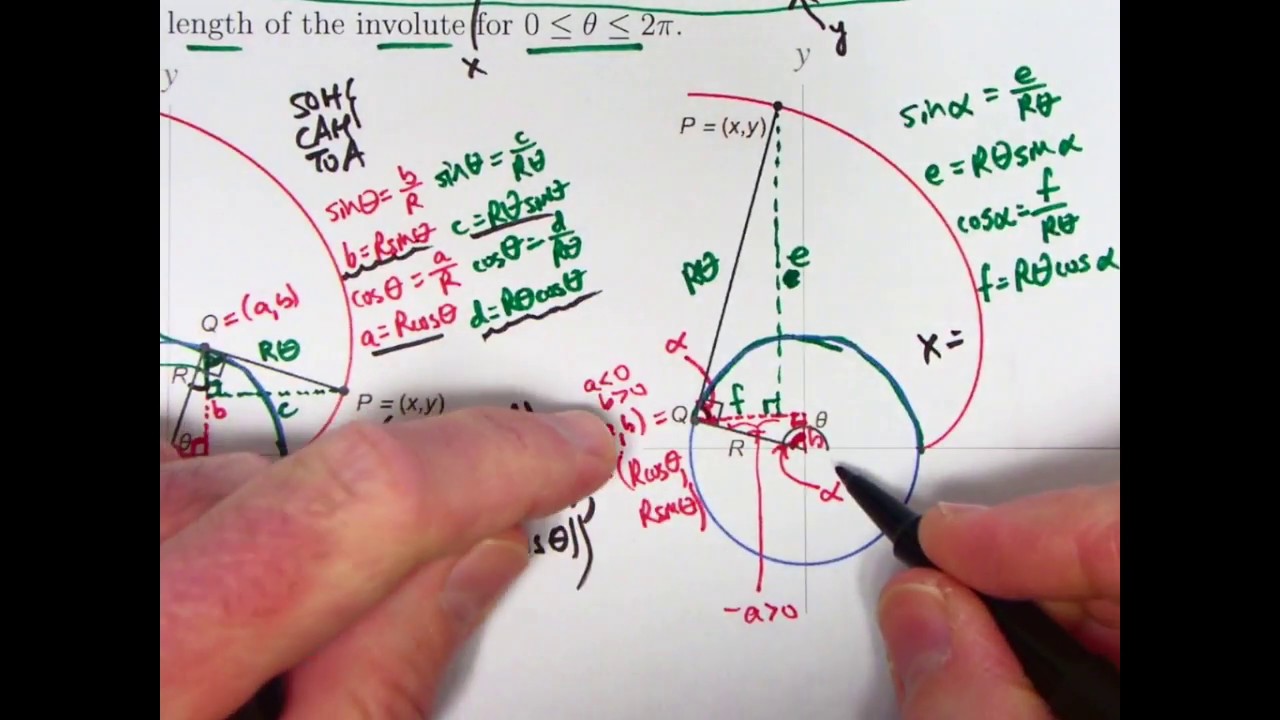 length of the involute for 0 ≤ θ ≤ 2π.
x
y
y
SOH
CAH
TOA
sinθ = b/R
b = Rsinθ
cosθ = a/R
a = Rcosθ
sinθ = c/Rθ
c = Rθsinθ
cosθ = d/Rθ
d = Rθcosθ
Q = (a,b)
Rθ
R
b
d
c
θ
P = (x,y)
y
P = (x,y)
Rθ
e
α
f
Q
R
θ
b
α
a<0
b>0
, b) =
(Rcosθ,
Rsinθ)
-a>0
sinα = e/Rθ
e = Rθsinα
cosα = f/Rθ
f = Rθcosα
x =
s θ)